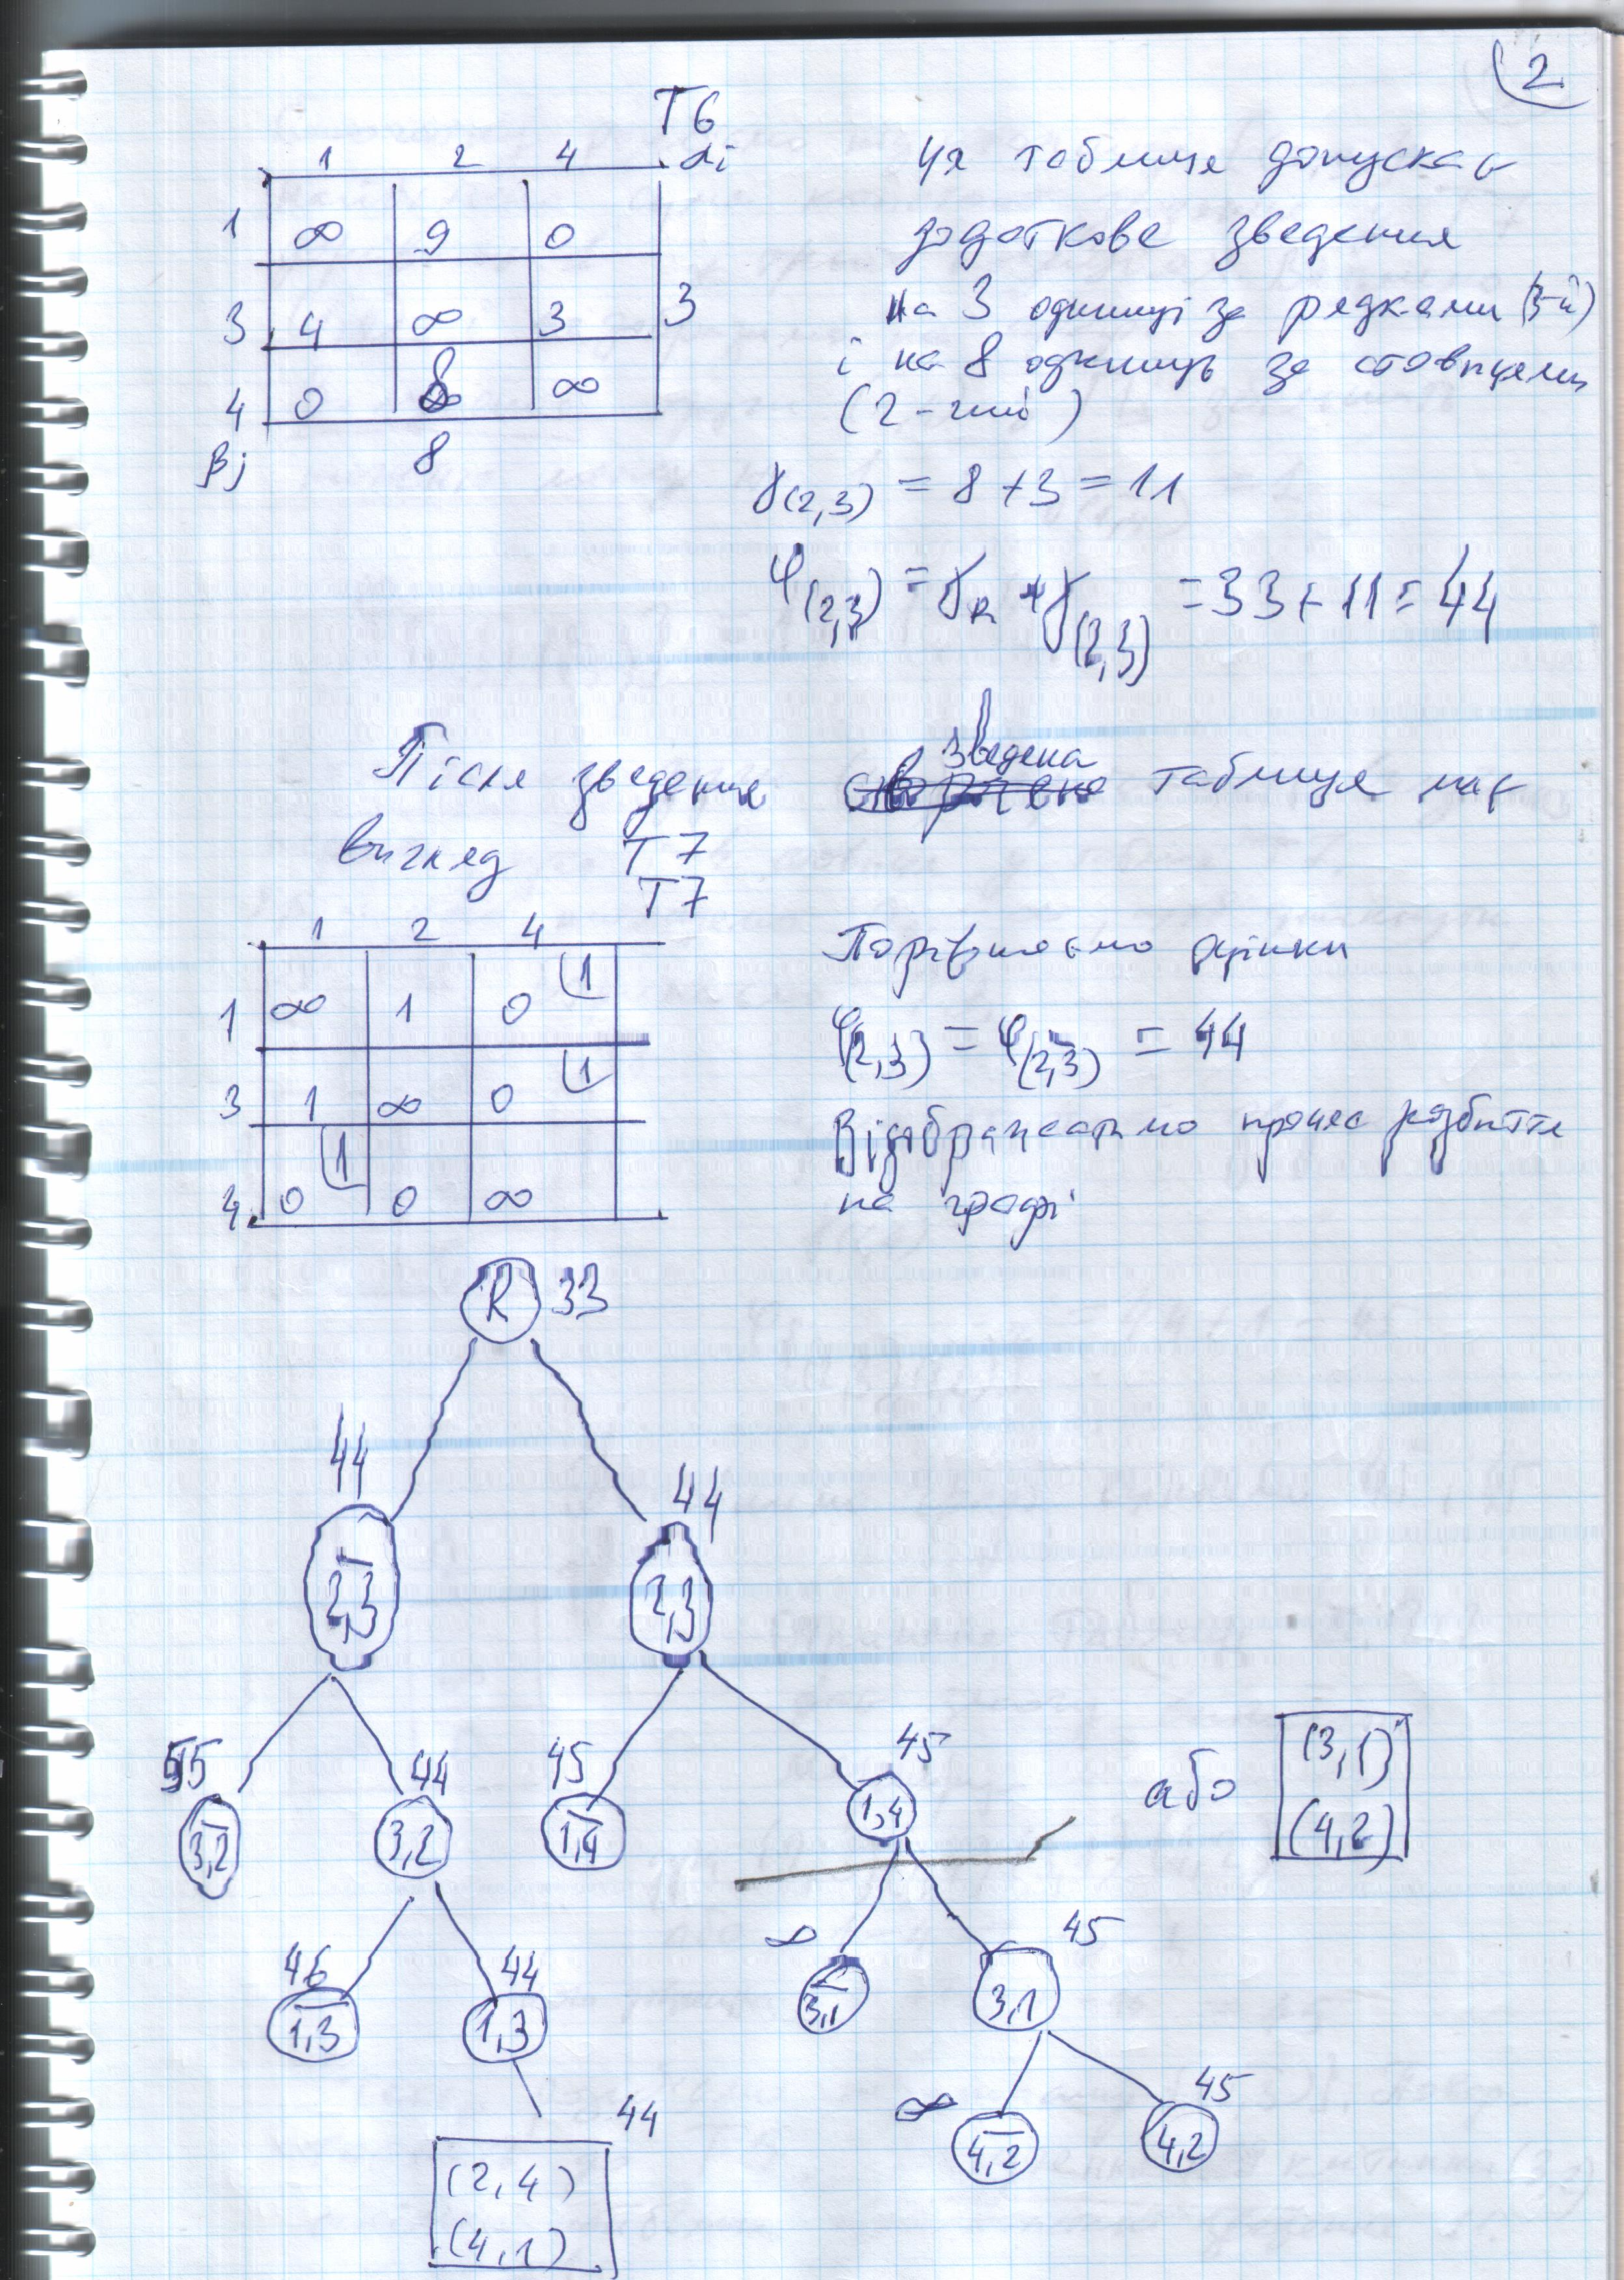 2
T6
1 2 4 αi
1 ∞ 9 0
3 4 ∞ 3 3
4 0 8 ∞
βj 8
Ця таблиця допускає
додаткове зведення
на 3 одиниці за рядками (3-й)
і на 8 одиниць за стовпцями
(2-гий)
γ(2,3) = 8 + 3 = 11
φ(2,3) = γR + γ(2,3) = 33 + 11 = 44
Після зведення зведена таблиця має
вигляд T7
T7
1 2 4
1 ∞ 1 0 1
3 1 ∞ 0 1
4 0 1 0 ∞
Порівнюємо оцінки
φ(2,3) = φ(2,3)̅ = 44
Відображатимо процес розбиття
на графі
R 33
44 44
2,3̅ 2,3
55 44 45 45
3,2̅ 3,2 1,4̅ 1,4
або
(3,1)
(4,2)
46 44 ∞ 45
1,3̅ 1,3 3,1̅ 3,1
44 ∞ 45
4,2̅ 4,2
(2,4)
(4,1)